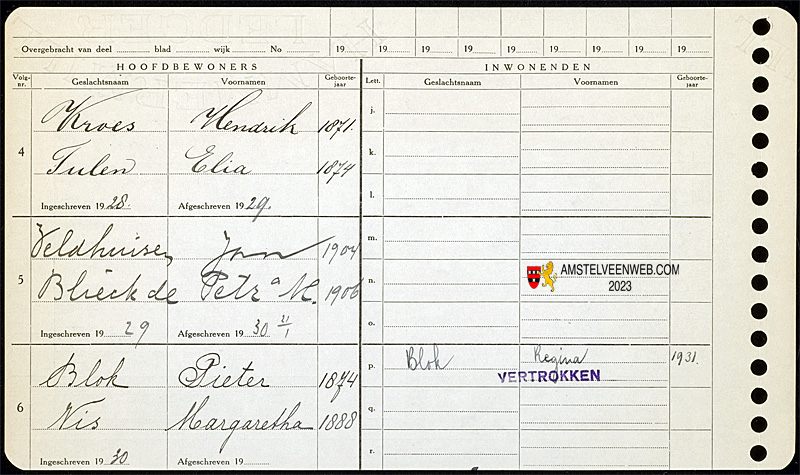 Overgebracht van deel ........ blad ........ wijk ........ No ........ 19 19 19 19 19 19 19 19 19
HOOFDBEWONERS INWONENDEN
Volg-nr. Geslachtsnaam Voornamen Geboorte-jaar Lett. Geslachtsnaam Voornamen Geboorte-jaar
4 Kroes Hendrik 1871. j.
Tulen Elia 1874 k.
Ingeschreven 1928. Afgeschreven 1929. l.
5 Veldhuisen Jan 1904 m.
Blieck de Petra M. 1906 n.
AMSTELVEENWEB.COM
2023
Ingeschreven 1929 Afgeschreven 1930 21/1 o.
6 Blok Pieter 1874 p. Blok Regina 1931.
VERTROKKEN
Nis Margaretha 1888 q.
Ingeschreven 1930 Afgeschreven 19 r.